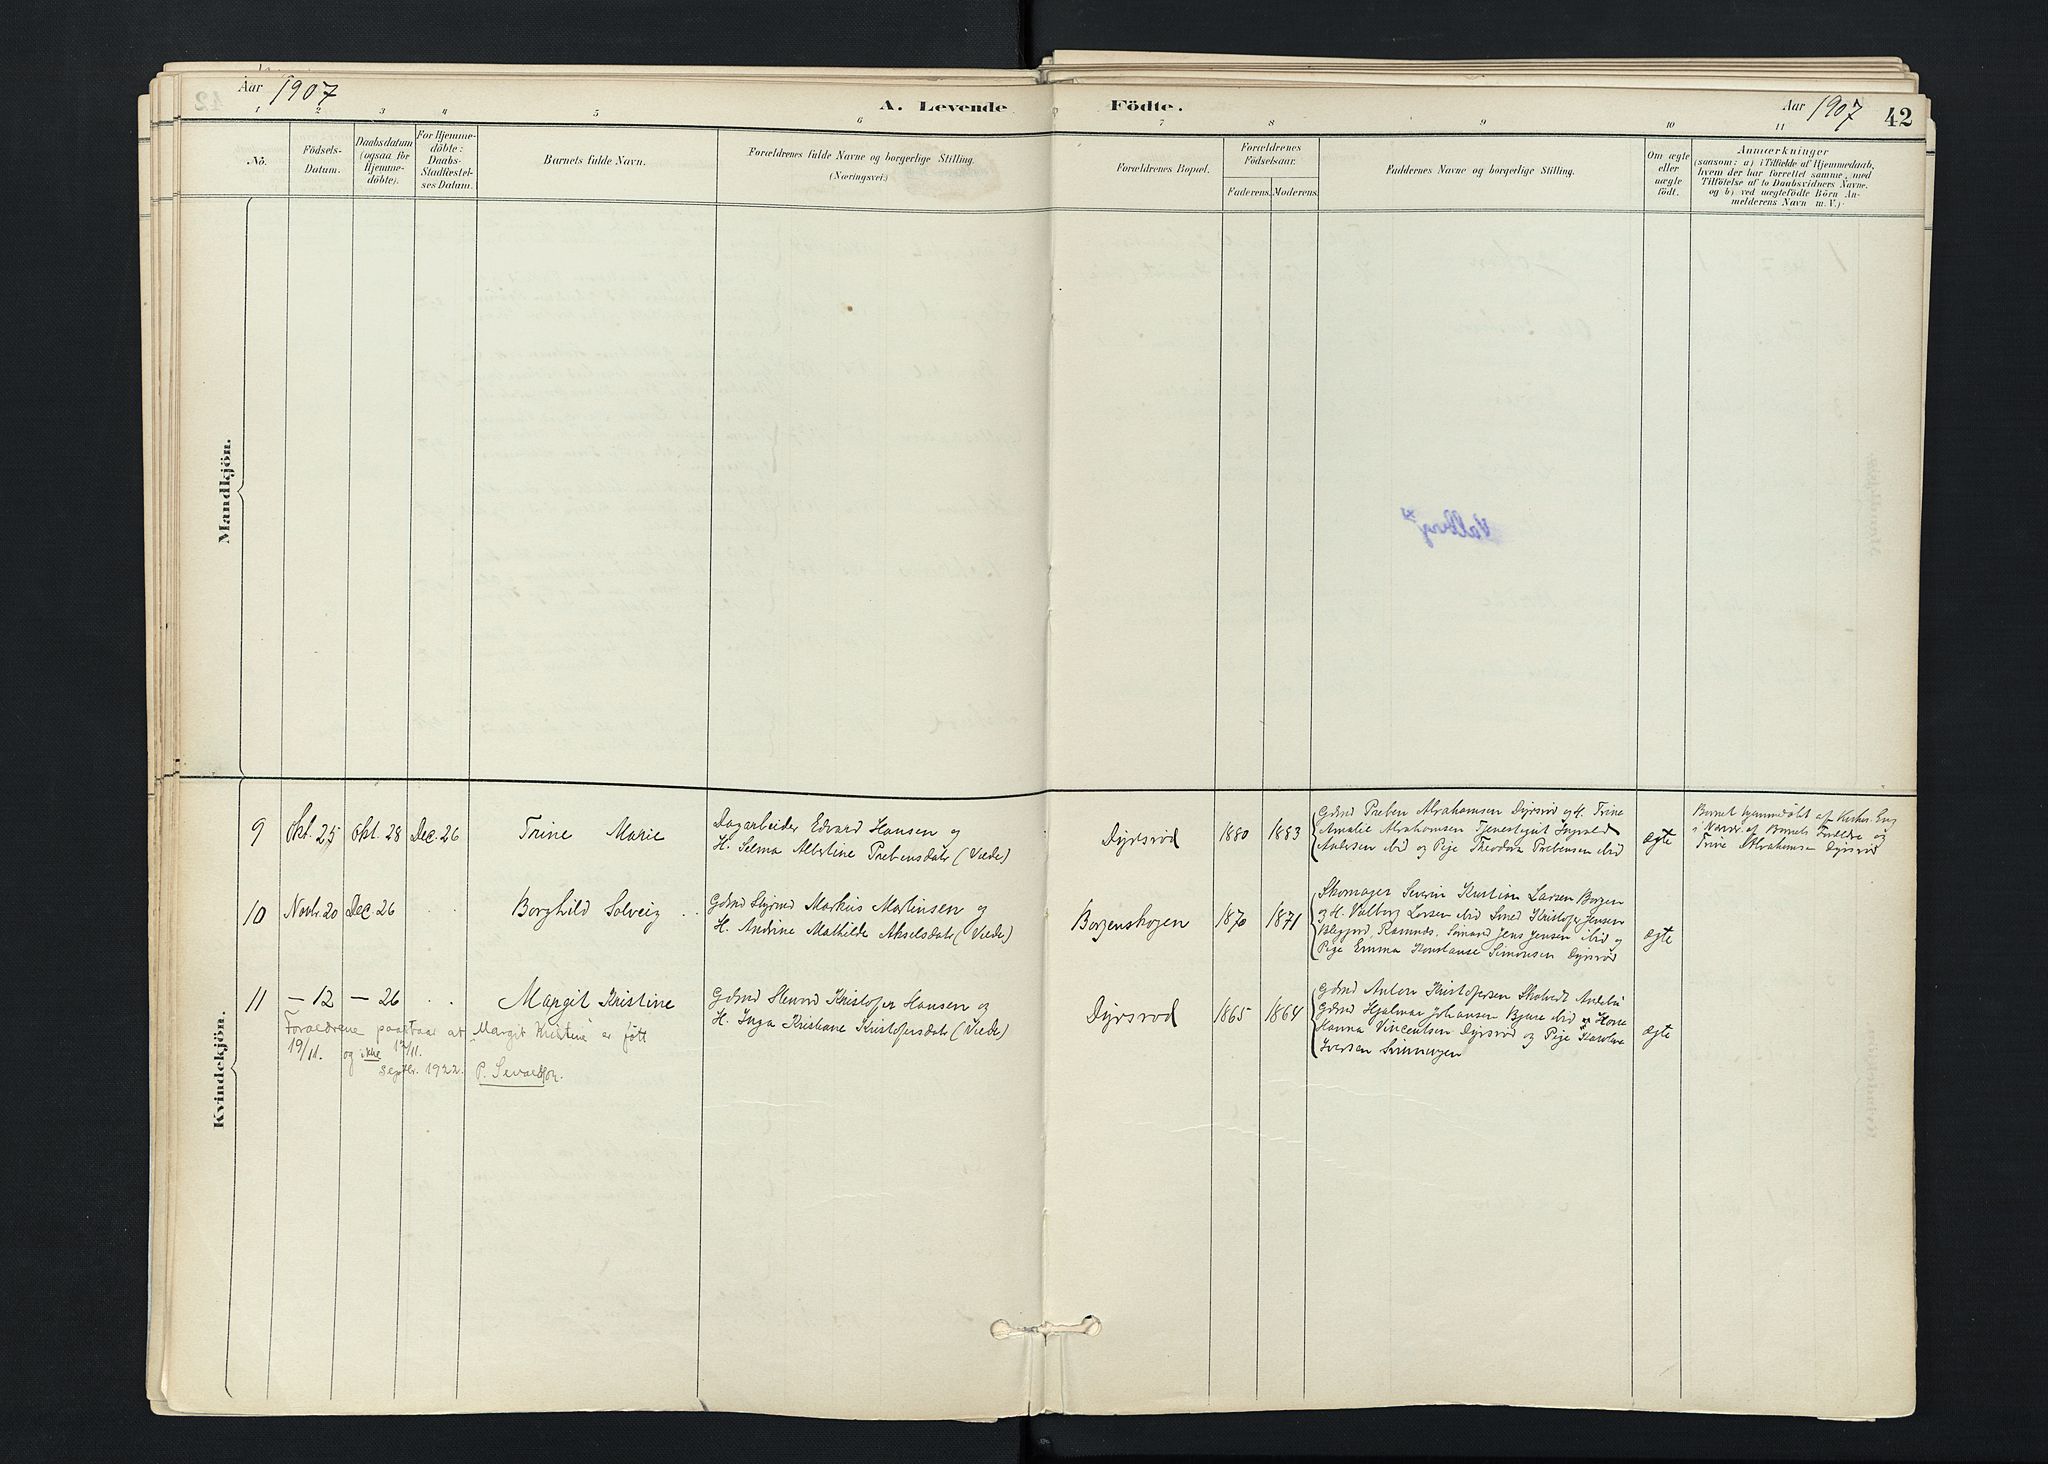 Aar 1907
A. Levende Födte.
Aar 1907
42
1 2 3 4 5 6 7 8 9 10 11
No.
Födsels-
Datum.
Daabsdatum
(ogsaa for
Hjemme-
döbte).
For Hjemme-
döbte:
Daabs-
Stadfæstel-
ses Datum.
Barnets fulde Navn.
Forældrenes fulde Navne og borgerlige Stilling.
(Næringsvei.)
Forældrenes Bopæl.
Forældrenes
Födselsaar.
Faderens. Moderens.
Faddernes Navne og borgerlige Stilling.
Om ægte
eller
uægte
födt.
Anmærkninger
(saasom: a) i Tilfælde af Hjemmedaab,
hvem der har forrettet samme, med
Tilföielse af to Daabsvidners Navne,
og b) ved uegtefödte Börn An-
melderens Navn m. V.)
Mandkjön.
Valborg
Kvindekjön.
9
Okt. 25
Okt. 28
Dec. 26
Trine Marie
Dagarbeider Edvard Hansen og
H. Selma Albertine Prebensdatr (Viede)
Dyrsrød
1880
1883
Gdmd Preben Abrahamsen Dyrsrød og H. Trine
Amalie Abrahamsen Tjenestegut Ingvald
Andersen ibid og Pige Theodora Prebensen ibid
ægte
Barnet hjemmedöbt af
i Nærvær. af Barnets Forældre og
Trine Abrahamsen Dyrsrød
10
Novbr. 20
Dec. 26
Borghild Solveig
Gdmd Styrmd Markus Martinsen og
H. Andrine Mathilde Akselsdatr (Viede)
Borgenskogen
1870
1871
Skomager Severin Kristian Larsen Borgen
og H. Valborg Larsen ibid Smed Kristofer Jensen
Ramnæs. Sömand Jens Jensen ibid og
Pige Emma Konstanse Simonsen Dyrsrød
ægte
11
— 12
— 26
Margit Kristine
Gdmd Kristofer Hansen og
H. Inga Kristiane Kristofersdatr (Viede)
Dyrsrød
1865
1864
Gdmd Anton Kristofersen Andebu
Gdmd Hjalmar Johansen Bjune ibid og Kone
Hanna Vincentsen Dyrsrød og Pige Karoline
Iversen
ægte
Foreldrene paastaar at Margit Kristine er født
19/11. og ikke 12/11.
septbr. 1922.